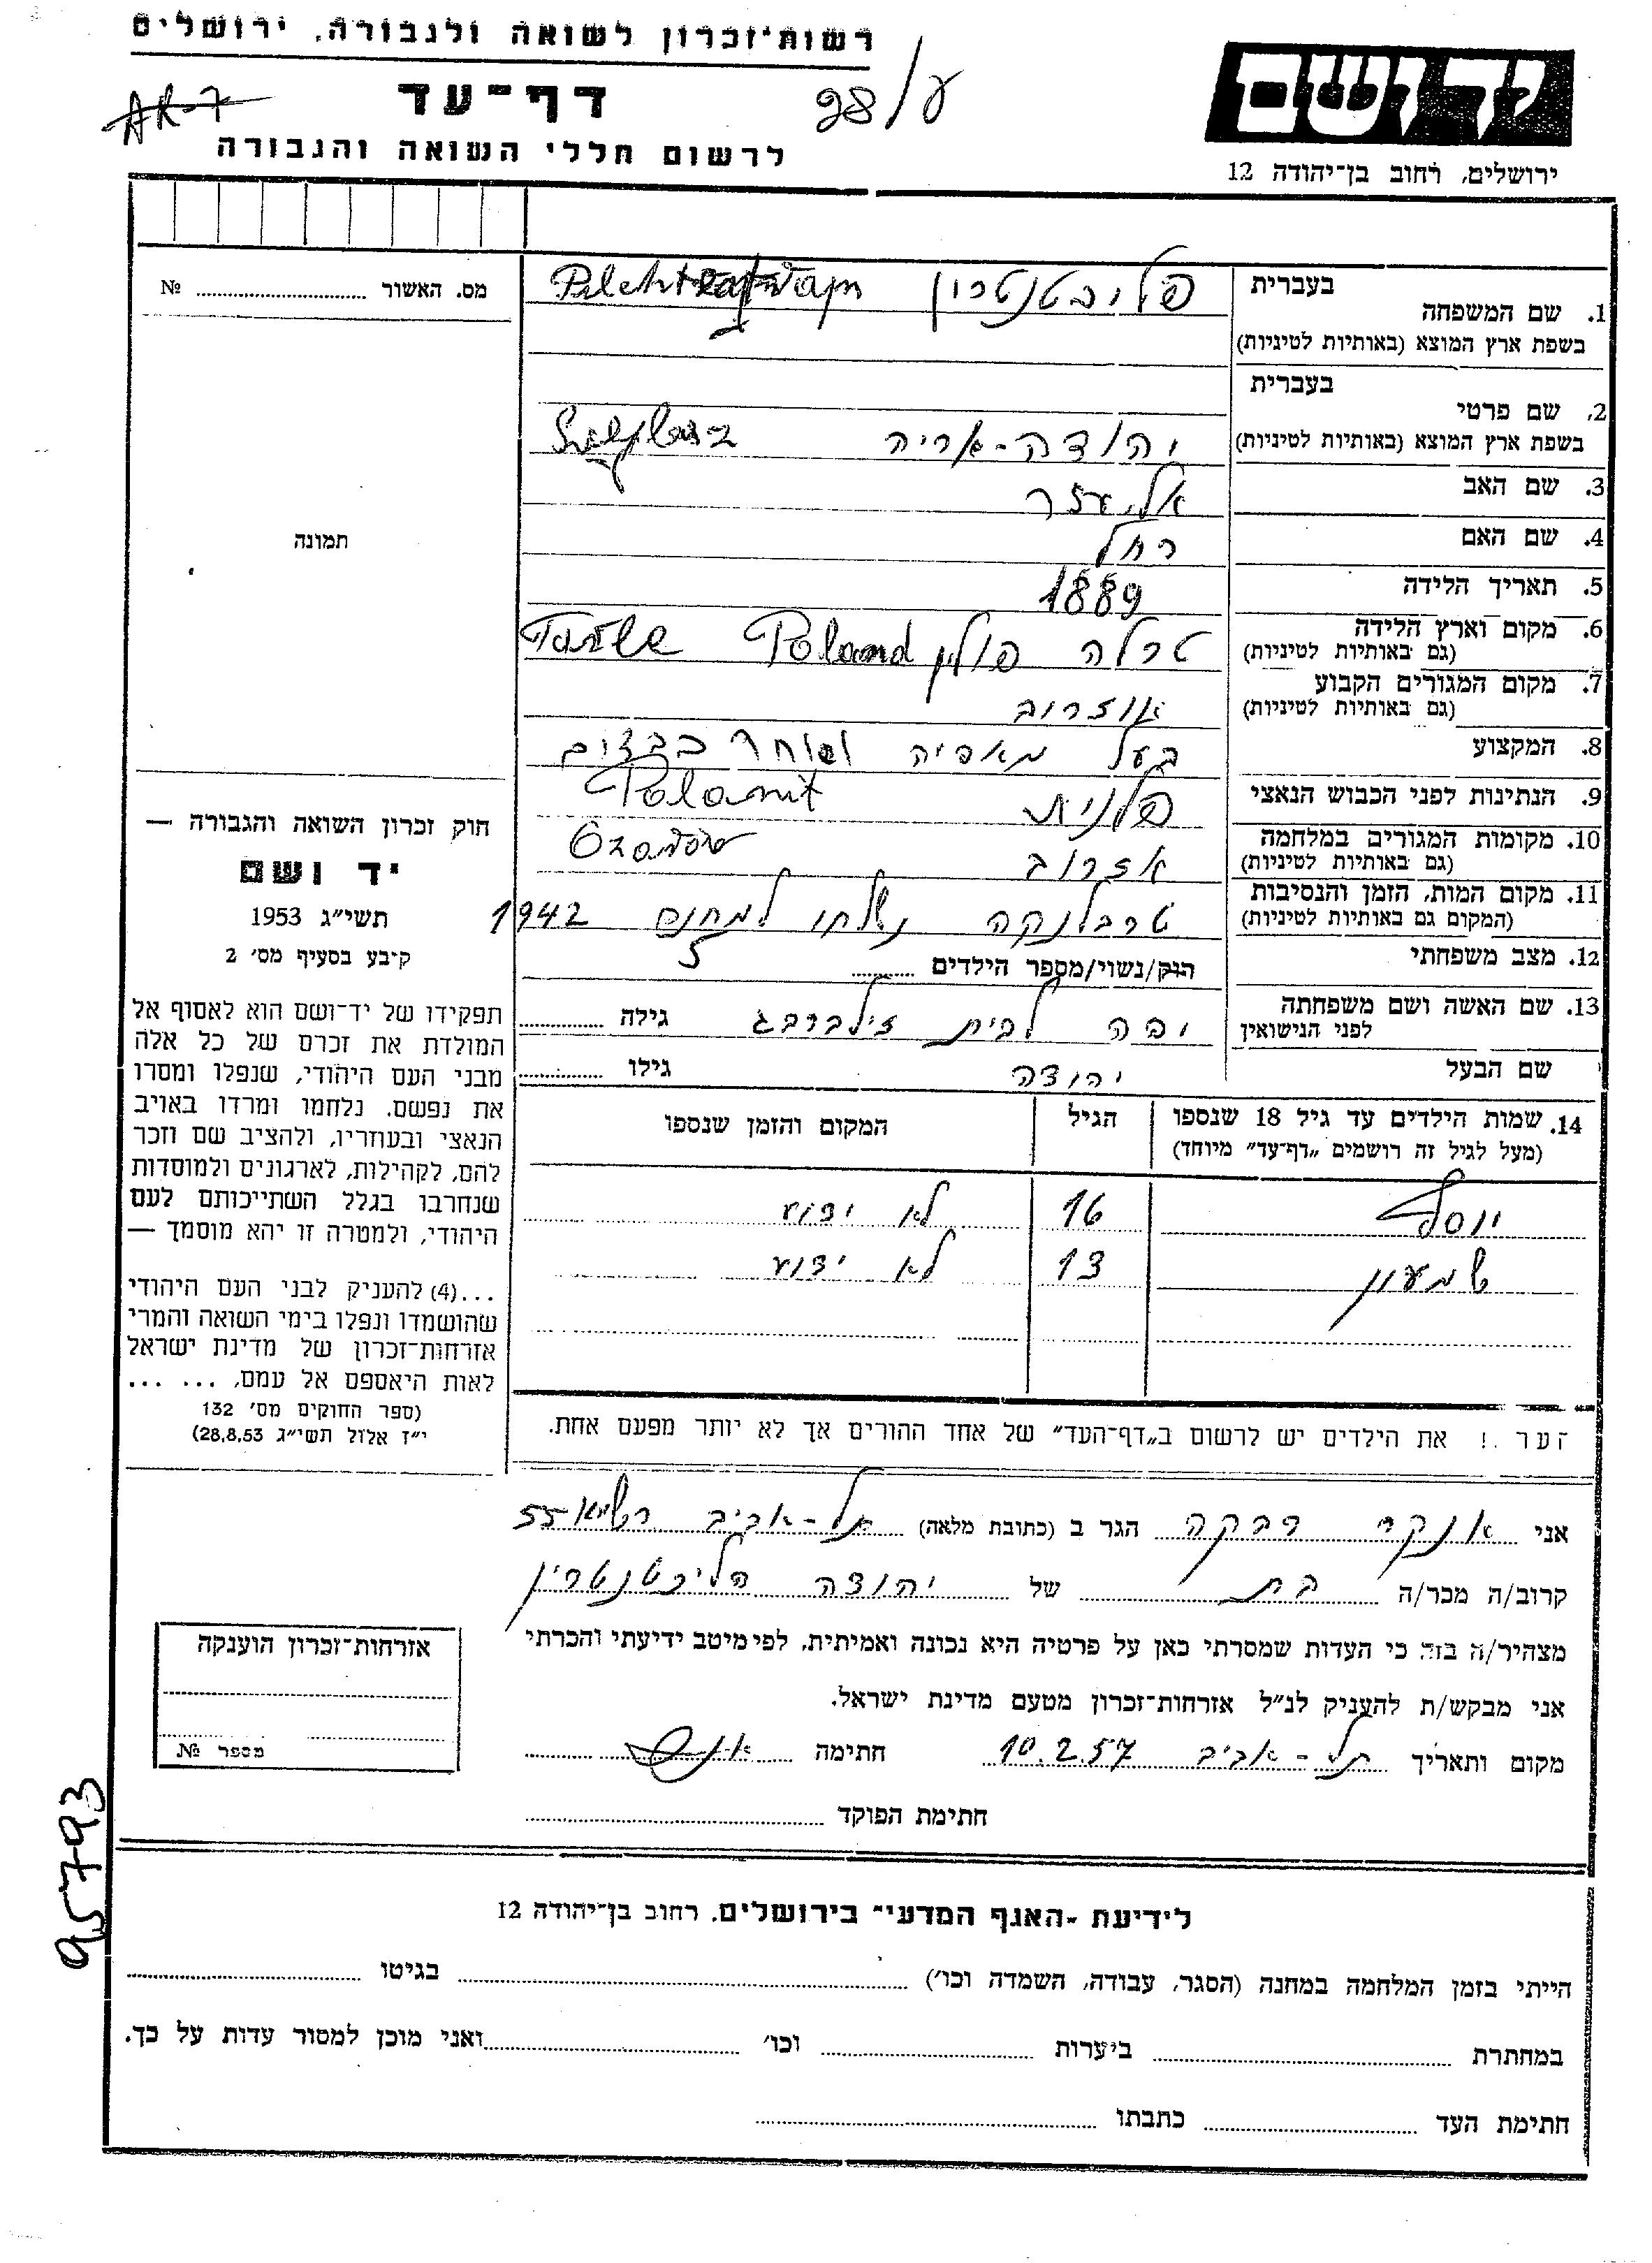 רשות־זכרון לשואה ולגבורה, ירושלים
יד ושם
דף־עד
AR-7
ע/98
לרשום חללי השואה והגבורה
ירושלים, רחוב בן־יהודה 12
מס. האשור № ..........
תמונה
בעברית
1. שם המשפחה
בשפת ארץ המוצא (באותיות לטיניות)
בעברית
2. שם פרטי
בשפת ארץ המוצא (באותיות לטיניות)
יהודה-אריה
3. שם האב אליעזר
4. שם האם רחל
5. תאריך הלידה 1889
6. מקום וארץ הלידה טרלה פולין Poland
(גם באותיות לטיניות)
7. מקום המגורים הקבוע אוזרוב
(גם באותיות לטיניות)
8. המקצוע בעל מאפיה וסוחר בבדים
9. הנתינות לפני הכבוש הנאצי פלנית Polanit
10. מקומות המגורים במלחמה אזרוב
(גם באותיות לטיניות)
11. מקום המות, הזמן והנסיבות טרבלנקה נשלחו למחנם 1942
(המקום גם באותיות לטיניות)
12. מצב משפחתי רוק/נשוי/מספר הילדים 5
13. שם האשה ושם משפחתה לבית זילברברג גילה ..........
לפני הנישואין
שם הבעל יהודה גילו ..........
14. שמות הילדים עד גיל 18 שנספו הגיל המקום והזמן שנספו
(מעל לגיל זה רושמים „דף־עד" מיוחד)
יוסף 16 לא ידוע
שמעון 13 לא ידוע
הער .! את הילדים יש לרשום ב„דף־העד" של אחד ההורים אך לא יותר מפעם אחת.
חוק זכרון השואה והגבורה —
יד ושם
תשי"ג 1953
קובע בסעיף מס׳ 2
תפקידו של יד־ושם הוא לאסוף אל
המולדת את זכרם של כל אלה
מבני העם היהודי, שנפלו ומסרו
את נפשם, נלחמו ומרדו באויב
הנאצי ובעוזריו, ולהציב שם וזכר
להם, לקהילות, לארגונים ולמוסדות
שנחרבו בגלל השתייכותם לעם
היהודי, ולמטרה זו יהא מוסמך —
...(4) להעניק לבני העם היהודי
שהושמדו ונפלו בימי השואה והמרי
אזרחות־זכרון של מדינת ישראל
לאות היאספם אל עמם, ... ...
(ספר החוקים מס׳ 132
י"ז אלול תשי"ג 28,8,53)
אני אנקר רבקה הגר ב (כתובת מלאה) תל-אביב 55
קרוב/ה מכר/ה בת של יהודה פליכטנטרין
מצהיר/ה בזה כי העדות שמסרתי כאן על פרטיה היא נכונה ואמיתית, לפי מיטב ידיעתי והכרתי
אני מבקש/ת להעניק לנ"ל אזרחות־זכרון מטעם מדינת ישראל.
מקום ותאריך תל-אביב 10.2.57 חתימה ..........
חתימת הפוקד ..........
אזרחות־זכרון הוענקה
מספר № 
95793
לידיעת „האגף המדעי" בירושלים, רחוב בן־יהודה 12
הייתי בזמן המלחמה במחנה (הסגר, עבודה, השמדה וכו׳) .......... בגיטו ..........
במחתרת .......... ביערות .......... וכו׳ .......... ואני מוכן למסור עדות על כך.
חתימת העד .......... כתבתו ..........